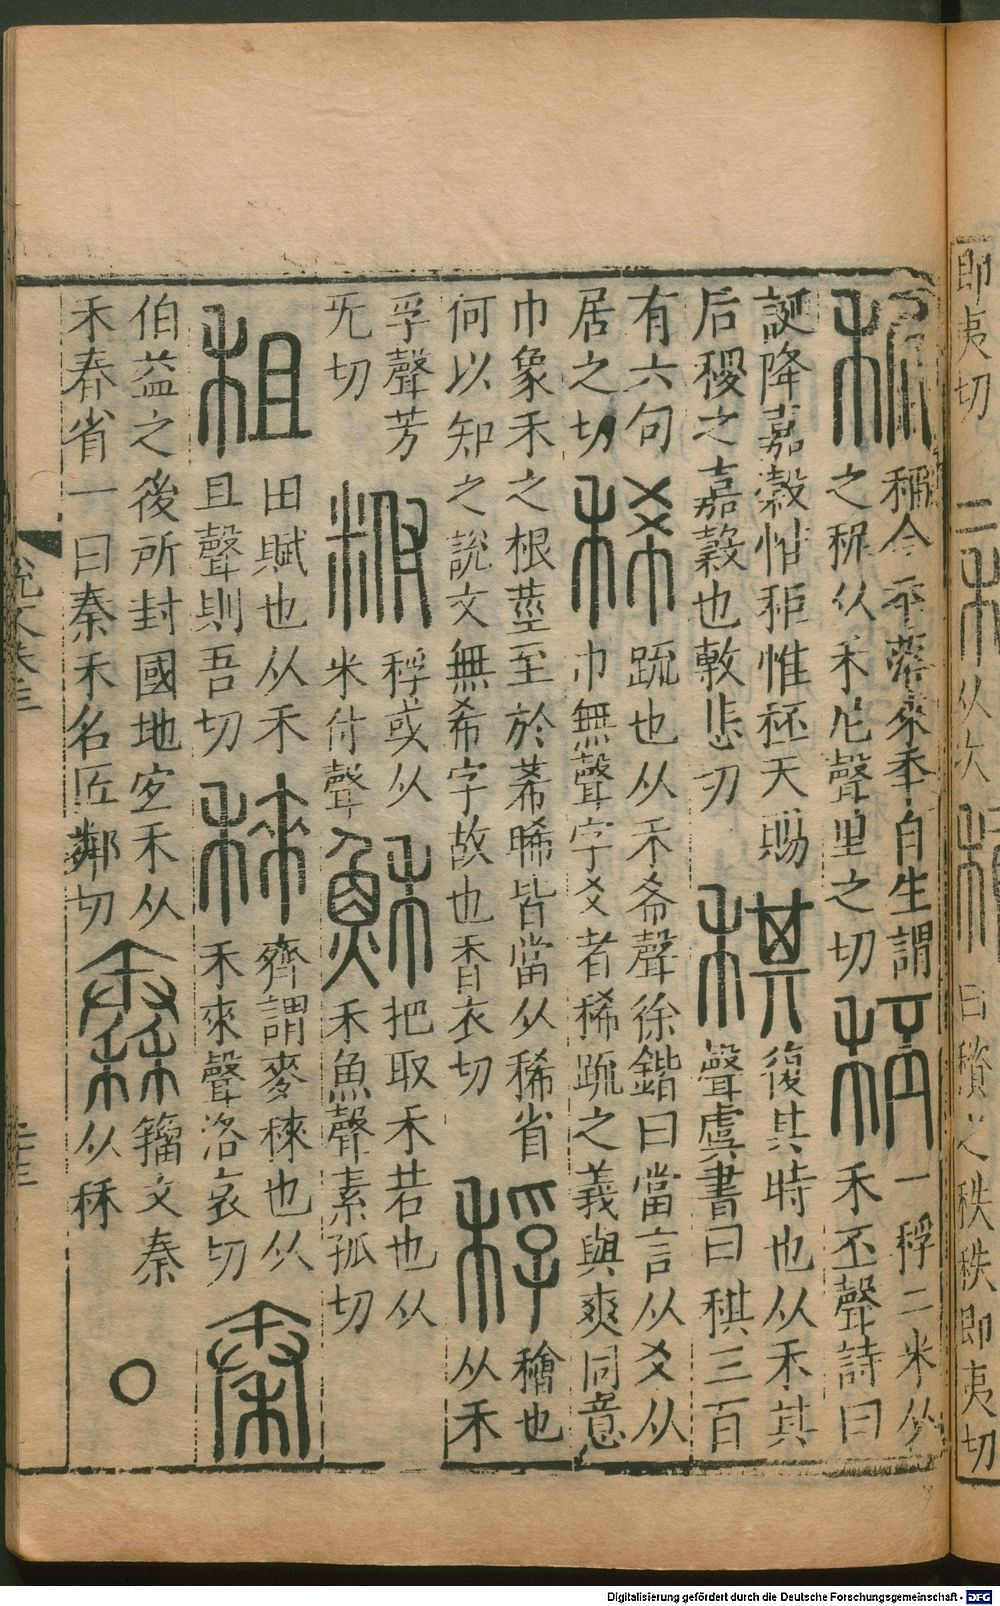 即夷切
二
从次
曰䅣之秩秩即夷切
稆今年落來年自生謂
之秜从禾尼聲里之切
一稃二米从
禾丕聲詩曰
誕降嘉穀惟秬惟秠天賜
后稷之嘉穀也敷悲切
復其時也从禾其
聲虞書曰稘三百
有六旬
居之切
疏也从禾希聲徐鍇曰當言从爻从
巾無聲字爻者稀疏之義與爽同意
巾象禾之根莖至於莃晞皆當从稀省
何以知之說文無希字故也香衣切
穭也
从禾
孚聲芳
旡切
稃或从
米付聲
把取禾若也从
禾魚聲素孤切
田賦也从禾
且聲則吾切
齊謂麥䅘也从
禾來聲洛哀切
伯益之後所封國地宐禾从
禾春省一曰秦禾名匠鄰切
籒文秦
从秝
說文
Digitalisierung gefördert durch die Deutsche Forschungsgemeinschaft - DFG